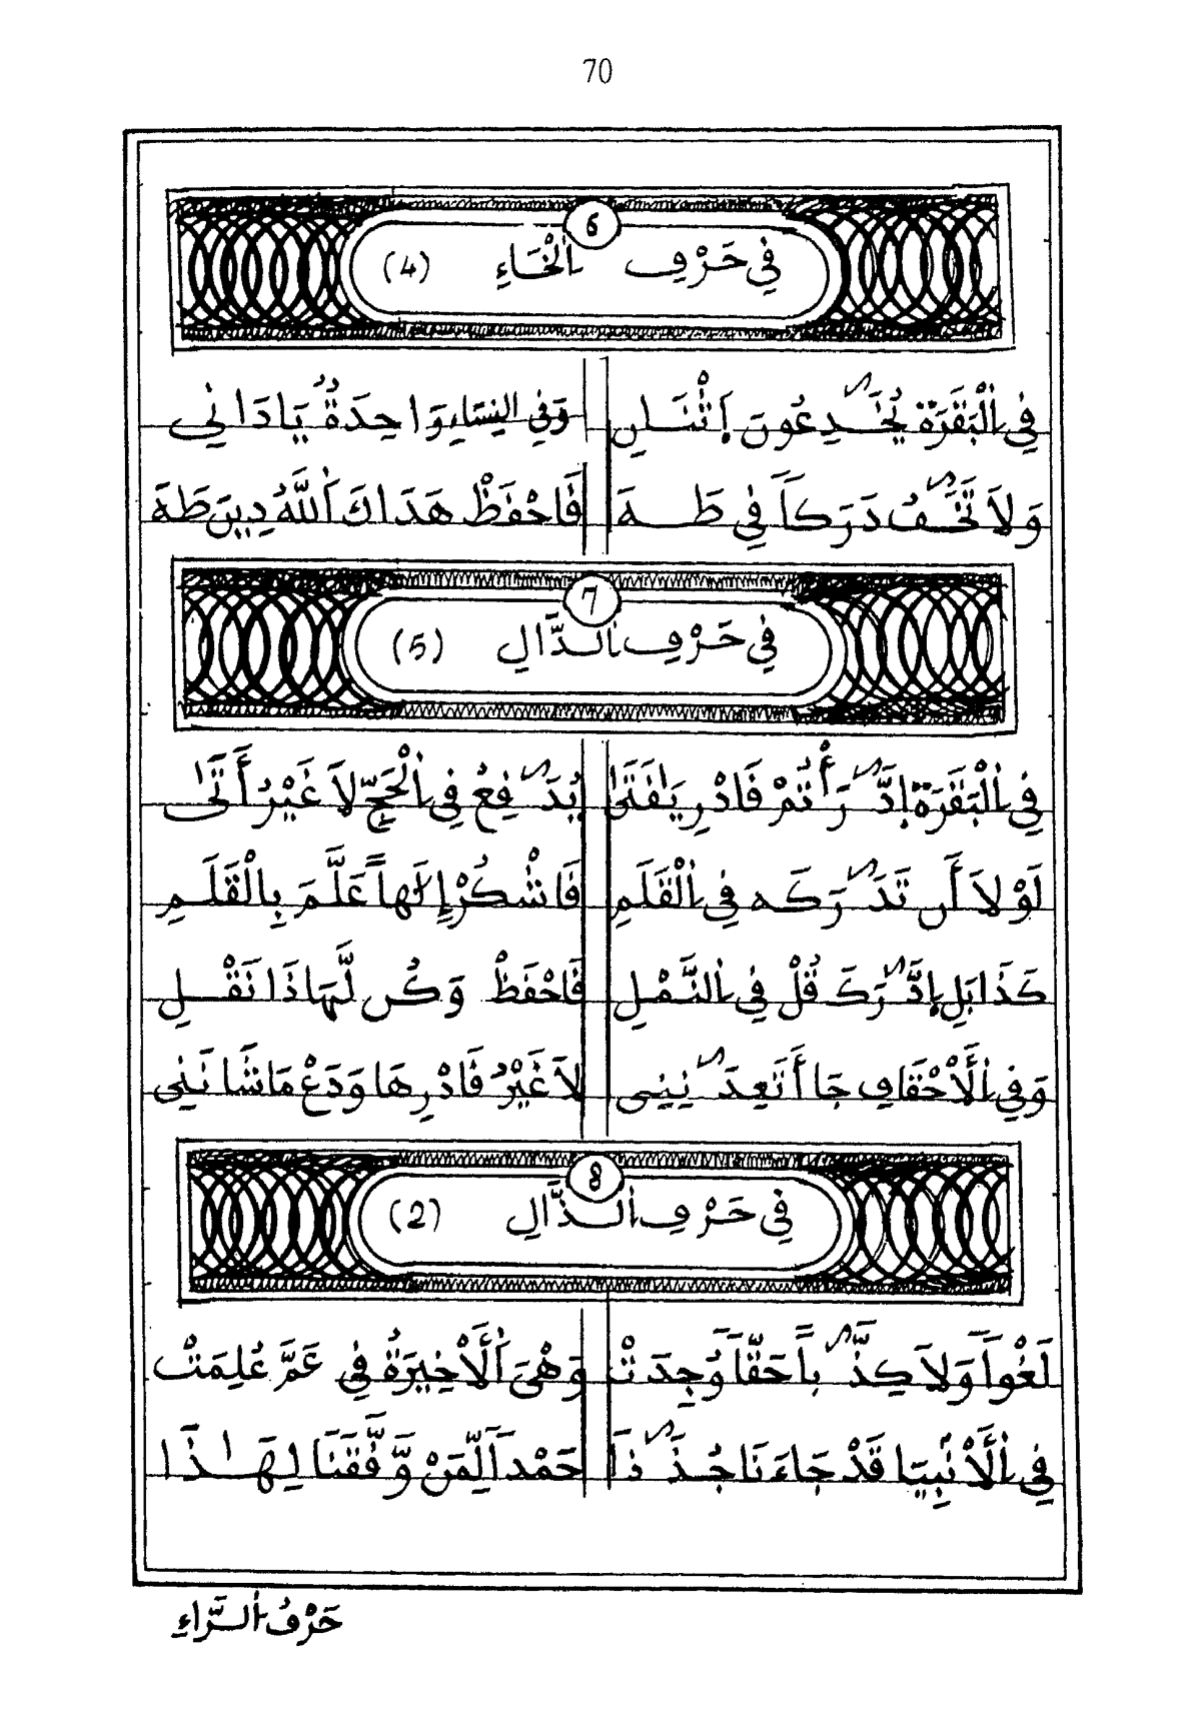 70
6
في حَرْفِ الْخَاءِ (4)
فِي الْبَقَرَة يُخَٰدِعُونَ إَثْنَانِ وَفِي النِسَاءِ وَاحِدَةٌ يَادَانِي
وَلاَ تَخَٰفُ دَرَكاً فِي طَهَ فَاحْفَظْ هَدَاكَ اللَّهُ دِينَ طَهَ
7
في حَرْفِ الدَّالِ (5)
فِي الْبَقَرَة إدَّٰرَأْتُمْ فَادْرِ يَافَتَىٰ يُدَٰفِعُ فِي الْحَجِّ لاَ غَيْرُ أَتَىٰ
لَوْلاَ أَن تَدَٰرَكَه فِي الْقَلَمِ فَاشْكُرْ إِلَٰهاً عَلَّمَ بِالْقَلَمِ
كَذَا بَلِ إدَّٰرَكَ قُلْ فِي النَّمْلِ فَاحْفَظْ وَكُن لَّهَاذَا نَقْلِ
وَفِي الَأَحْقَافِ جَا أَتَعِدَٰنِنِي لاَ غَيْرُ فَادْرِهَا وَدَعْ مَا شَانَنِي
8
في حَرْفِ الذَّالِ (2)
لَغْواً وَلاَ كِذَّٰباً حَقّاً وُجِدَتْ وَهْيَ الَأَخِيرَةُ فِي عَمَّ عُلِمَتْ
فِي الَأَنْبِيَا قَدْ جَاءَنَا جُذَٰذاَ حَمْداً لِّمَنْ وَّفَّقَنَا لِهَٰذَا
حَرْفُ الرَّاءِ